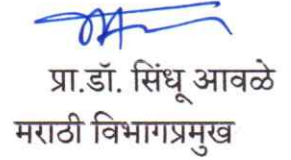 प्रा.डॉ. सिंधू आवळे
मराठी विभागप्रमुख